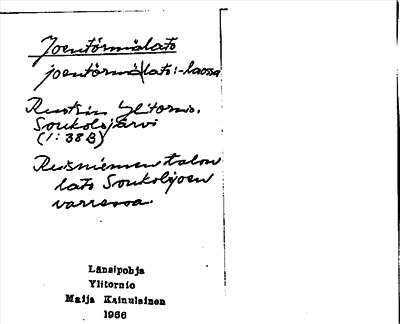 Joentörmälato
joentörmä|lato: -laossa
Ruotsin Ylitornio.
Soukolojärvi
(1:38B)
Rusniemen talon
lato Soukolojoen
varressa.
Länsipohja
Ylitornio
Maija Kainulainen
1966